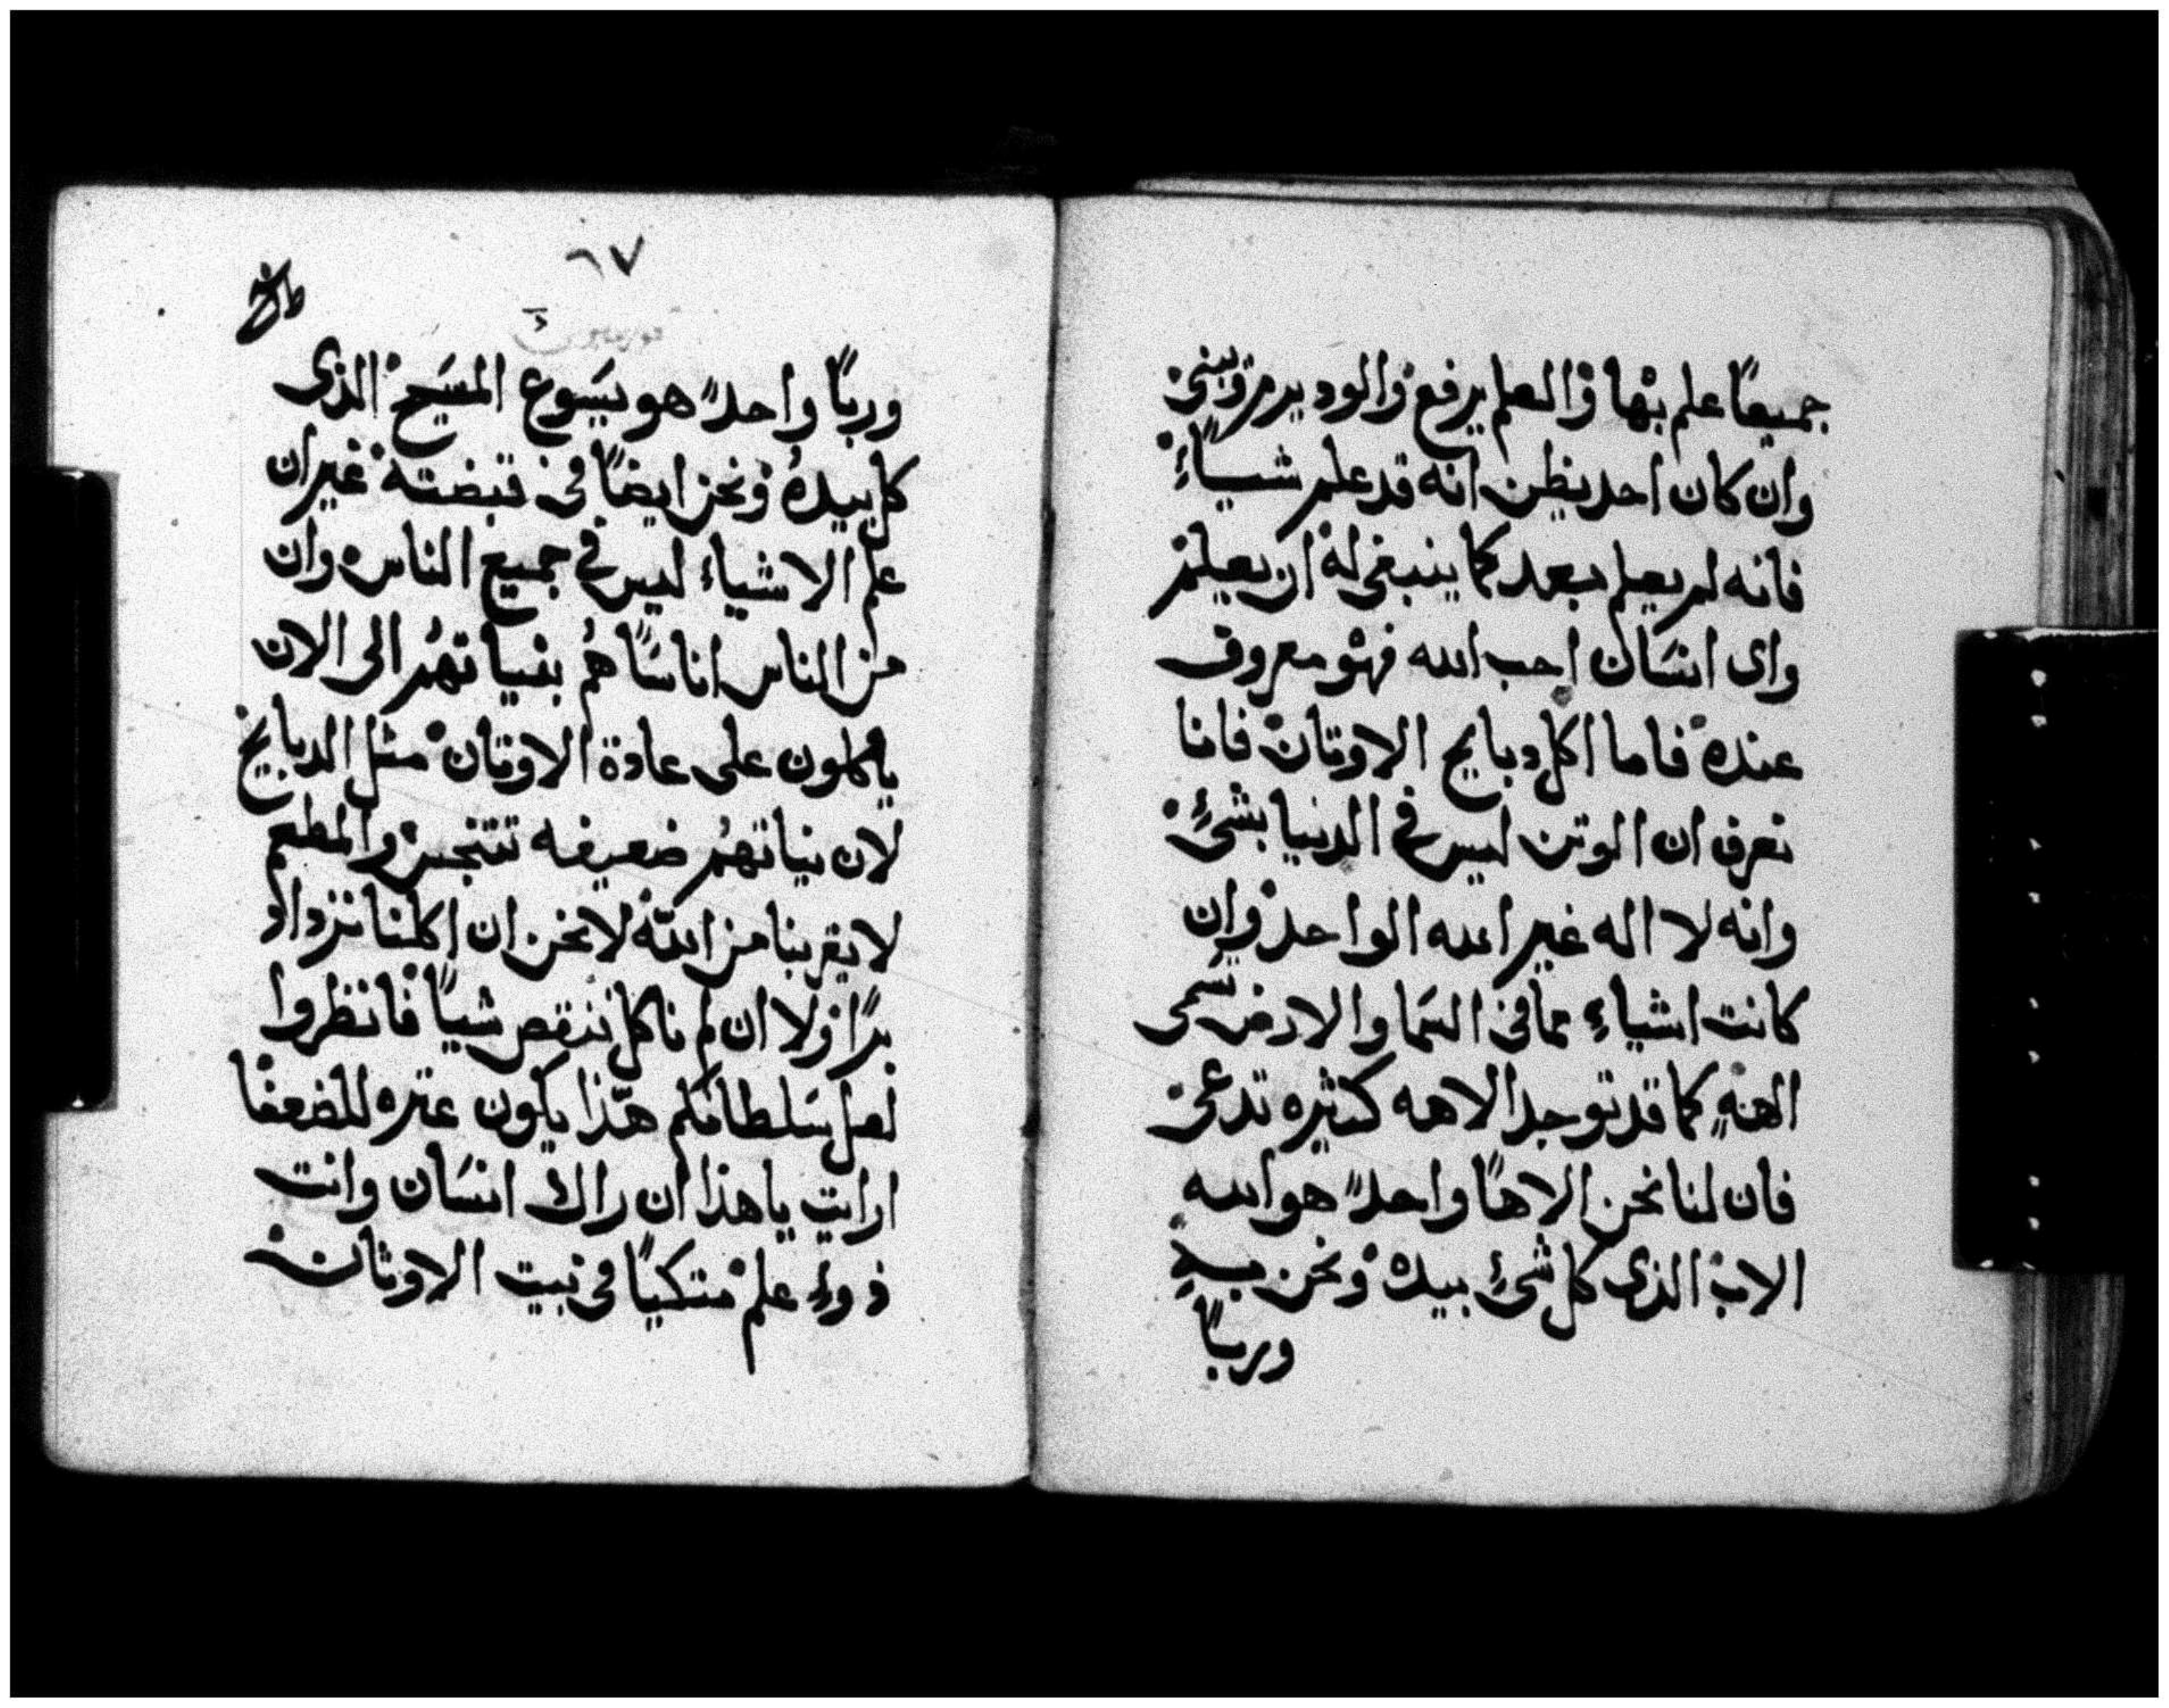 جميعًا علم بها والعلم يرفع والود يرم ويبنى
وان كان احد يظن انه قد علم شياءً
فانه لم يعلم بعد كما ينبغى له ان يعلم
واى انسان احب الله فهو معروف
عنده فاما اكل دبايح الاوتان فانا
نعرف ان الوتن ليس فى الدنيا بشئ
وانه لا اله غير الله الواحد وان
كانت اشياء مما فى السما والارض تسمى
الهة كما قد توجد الاهه كثيره تدعى
فان لنا نحن الاهًا واحدًا هو الله
الاب الذى كل شئ بيده ونحن بيده
وربًا
٦٧
وربًا واحدًا هو يسوع المسيح الذى
كل بيده ونحن ايضًا فى قبضته غير ان
علم الاشياء ليس فى جميع الناس وان
من الناس اناسًا هم بنياتهم الى الان
ياكلون على عادة الاوتان مثل الدبايخ
لان نياتهم ضعيفه تتنجس والمطعم
لا يقربنا من الله لا نحن ان اكلنا نزداد
برًا ولا ان لم ناكل ننقص شيًا فانظروا
لعل سلطانكم هذا يكون عتره للضعفا
ارايت ياهذا ان راك انسان وانت
ذوء علم متكيًا فى بيت الاوثان